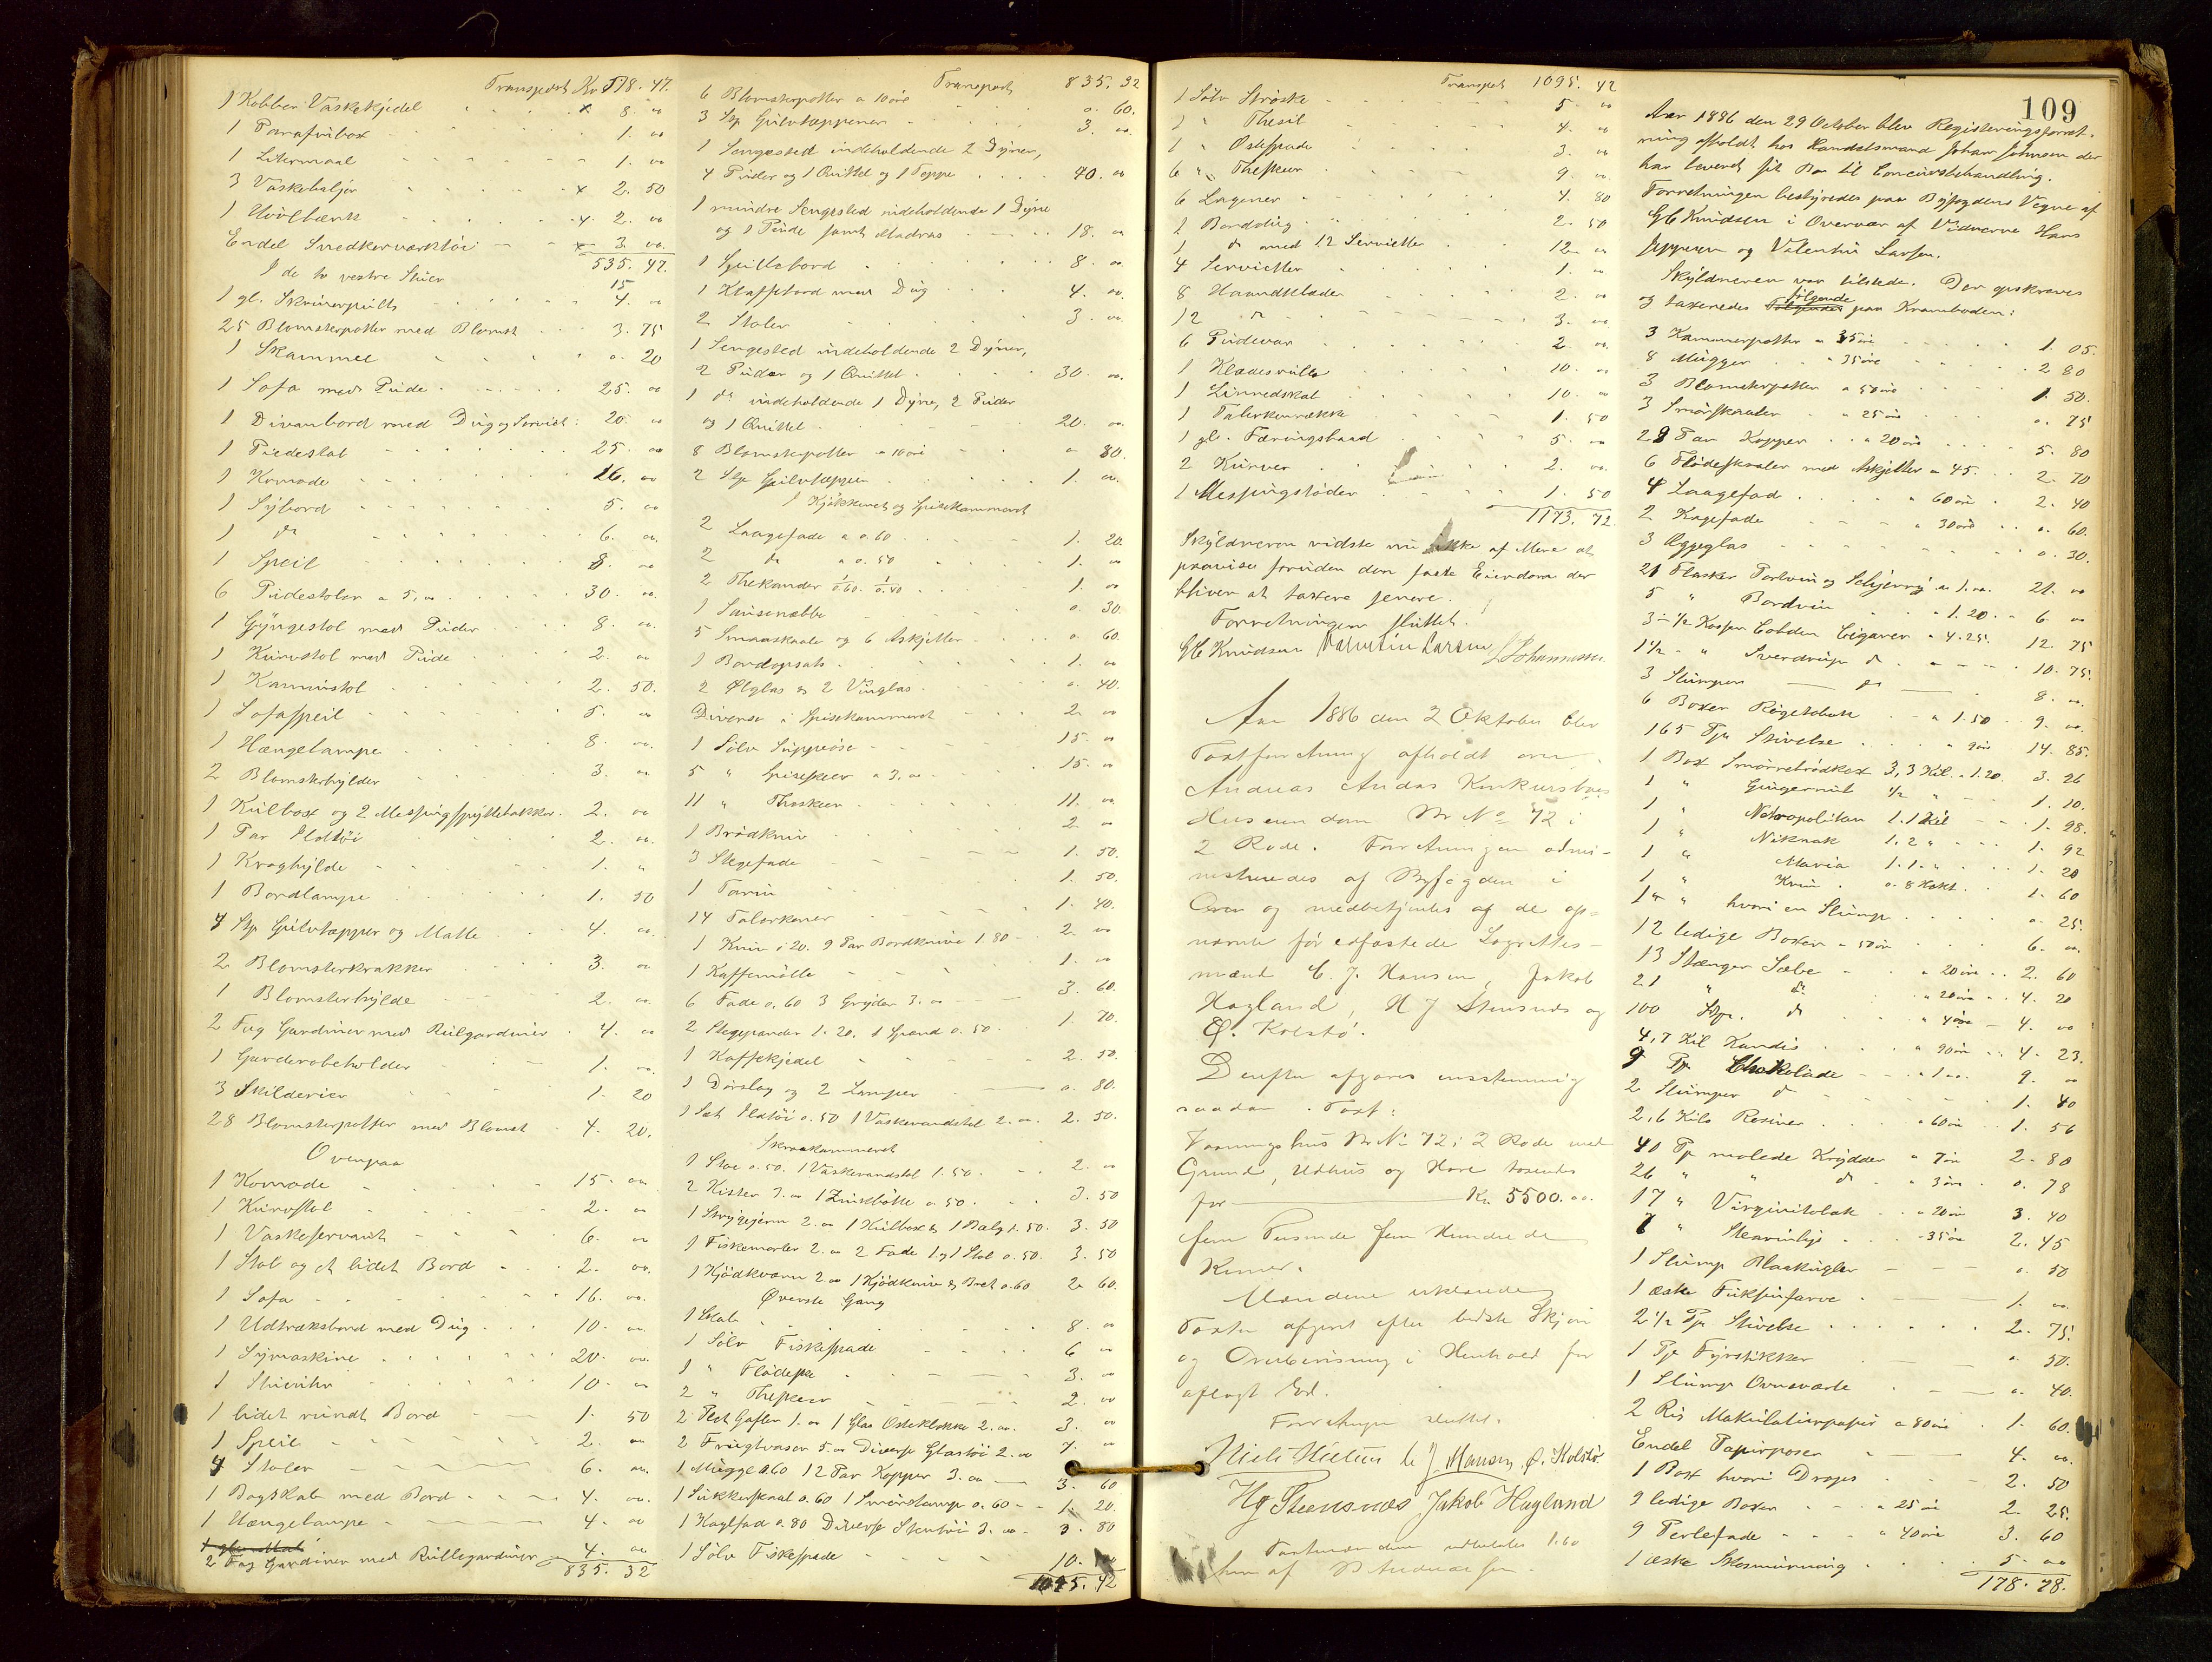 Transport Kr 518. 47.
1 Kobber Vaskekjedel x 8. oo
1 Parafinbox 1. oo
1 Litermaal 1. oo
3 Vaskebaljer x 2. 50
1 Hövlbænk x 2. oo
Endel Snedkerværktöi x 3 oo.
535. 47.
I de to vestre Stuer 15
1 gl. Skriverpult 4. oo
25 Blomsterpotter med Blomst 3. 75
1 Skammel o. 20
1 Sofa med Pude 25. oo
1 Divanbord med Dug og Serviet: 20. oo
1 Piedestal 25. oo
1 Komode 16. oo
1 Sybord 5. oo
1 do 6. oo.
1 Speil 8. oo
6 Pudestoler a 5,oo 30. oo.
1 Gyngestol med Puder 8. oo.
1 Kurvstol med Pude 2. oo
1 Kaminstol 2. 50.
1 Sofaspeil 5. oo
1 Hængelampe 8. oo.
2 Blomsterhylder 3. oo
1 Kulbox og 2 Messingspyttebakker. 2. oo
1 Par Ildtöi 2. oo.
1 Kraghylde 1. "
1 Bordlampe 1. 50
4 Stp Gulvtæpper og Matte 4. oo.
2 Blomsterkrakker 3. oo
1 Blomsterhylde 2. oo.
2 Fag Gardiner med Rulgardiner 4. oo
1 Garderobeholder 1. oo.
3 Skilderier 1. 20
28 Blomsterpotter med Blomst 4. 20.
Ovenpaa
1 Komode 15. oo
1 Kurvstol 2. oo
1 Vaskeservant 6. oo
1 Stol og et lidet Bord 2. oo.
1 Sofa 16. oo.
1 Udtræksbord med Dug 10. oo.
1 Symaskine 20. oo.
1 Stueuhr 10. oo
1 lidet rundt Bord 1. 50
1 Speil 2. oo
4 Stoler 6. oo.
1 Bogskab med Bord 4. oo.
1 Hængelampe 4. oo
2 Fag Gardiner med Rullegardiner 4. oo
835. 32
Transport 835. 32
6 Blomsterpotter a 10 öre o. 60.
3 Stp Gulvtæpper 3. oo.
1 Sengested indeholdende 2 Dyner,
4 Puder og 1 Quiltet og 1 Tæppe 40. oo
1 mindre Sengested indeholdende 1 Dyne
og 1 Pude samt Madras 18. oo
1 Spillebord 8. oo.
1 Klaffebord med Dug 4. oo.
2 Stoler 3. oo.
1 Sengested indeholdende 2 Dyner,
2 Puder og 1 Quiltet 30. oo.
1 do indeholdende 1 Dyne, 2 Puder
og 1 Quiltet 20. oo.
8 Blomsterpotter a 10 öre o 80.
2 Stp Gulvtæpper 1. oo.
I Kjøkkenet og Spisekammeret
2 Laagefade a o. 60 1. 20.
2 do a o. 50 1. oo
2 Thekander 1/o.60. 1/o.40 1. oo
1 Sausenæbbe o. 30
5 Smaaskaale og 6 Askjetter o. 60.
1 Bordopsats 1. oo
2 Ølglas & 2 Vinglas o. 40.
Diverse i Spisekammeret 2. oo
1 Sölv Suppeöse 15. oo
5 " Spiseskeer a 3. oo 15. oo
11 " Theskeer 11. oo.
1 Brödkniv 2. oo
3 Stegefade 1. 50.
1 Tarin 1. 50.
14 Talerkener 1. 40.
1 Kniv o 20. 9 Par Bordknive 1.80 2. oo
1 Kaffemölle 1. oo
6 Fade o. 60 3 Gryder 3. oo 3. 60.
2 Stegepander 1. 20. 1 Spand o. 50. 1. 70.
1 Kaffekjedel 2. 50.
1 Dörslag og 2 Lamper o. 80.
1 Sæt Ildtöi o. 50 1 Vaskevandstol 2. oo. 2. 50.
Skraakammeret
1 Stoe o. 50. 1 Vaskevandstol 1. 50. 2. oo
2 Kister 3. oo 1 Zinkbötte o. 50. 3. 50
1 Strygejern 2. oo 1 Kulbox & 1 Balg 1. 50. 3. 50
1 Fiskemorter 2. oo 2 Fade 1 og 1 Stol o. 50. 3. 50
1 Kjödkværn 2. oo 1 Kjödkniv & Bret o. 60 2. 60.
Øverste Gang
1 Skab 8. oo
1 Sölv Fiskespade 6 oo
1 " Flödeske 3. oo
2 " Theskeer 2. oo
2 Plet Gafler 1. oo 1 Glas Osteklokke 2. oo. 3. oo
2 Frugtvaser 5. oo Diverse Glastöi 2. oo 7. oo
1 Mugge o.60 12 Par Kopper 3. oo 3. 60
1 Sukkerskaal o. 60 1 Smörstamp o. 60 1. 20.
1 Kagefad o. 80 Diverse Stentöi 3. oo 3. 80
1 Sölv Fiskespade 10. oo
1095. 42
Transport 1095. 42
1 Sölv Ströske 5. oo
1 " Thesil 4. oo
1 " Ostespade 3. oo
6 " Theskeer 9. oo.
6 Lagener 4. 80
2 Borddug 2. 50
1 do med 12 Servietter 12. oo
4 Servietter 1. oo
8 Haandklæder 2. oo
12 do 3. oo.
6 Pudevar 2 oo.
1 Klædesrulle 10. oo
1 Linnedskab 10. oo
1 Talerkenrække 1. 50
1 gl. Færingsbaad 5. oo
2 Kurver 2. oo.
1 Messingstöder 1. 50
1173. 72
Skyldneren vidste nu ikke af Mere at
paavise foruden den faste Eiendom der
bliver at taxere senere.
Forretningen sluttet.
GC Knudsen Valentin Larsen L Johannessen
Aar 1886 den 2 Oktober blev
Taxtforretning afholdt over
Andreas Andas Konkursboes
Huseiendom Mr No 72 i
2 Rode. Forretningen admi-
nistreredes af Byfogden i
Over og medbetjentes af de op=
nævnte før edfæstede Lagrettes-
mænd C. J. Hansen, Jakob
Hagland, H J Stensnæs og
Ø. Kolstö.
Derefter afgaves enstemmig
saadan Taxt:
Vaaningshus Mr No 72 i 2 Rode med
Grund, Udhus og Have taxeredes
for Kr 5500. oo.
fem Tusinde fem Hundrede
Kroner.
Mændene erklærede
Taxten afgivet efter bedste Skjön
og Overbevisning i Henhold til
aflagt Ed.
Forretningen sluttet.
Niels Nielsen C J. Hansen. Ø. Kolstö.
Hg Steensnæs Jakob Hagland
Taxtmændene udbetalte 1.60
hver af
109
Aar 1886 den 29 October blev Registeringsforret-
ning afholdt hos Handelsmand Johan Johnsen der
har leveret sit Bo til Concursbehandling.
Forretningen bestyredes paa Byfogdens Vegne af
GC Knudsen i Overvær af Vidnerne Hans
Jeppesen og Valentin Larsen.
Skyldneren var tilstede. Der opskreves
og taxeredes følgende paa Kramboden:
3 Kammerpotter a 35 öre 1. 05.
8 Mugger " 35 öre 2 80
3 Blomsterpotter a 50 öre 1. 50.
3 Smörskaaler " 25 öre o. 75
29 Par Kopper a 20 öre 5. 80
6 Flödeskaaler med Askjetter a 45. 2. 70
4 Laagefad " 60 öre 2. 40
2 Kagefade " 30 öre o. 60.
3 Æggeglas o. 30.
21 Flasker Portvin og Scherry a 1. oo. 21. oo
5 " Bordvin " 1. 20 6. oo
3 - 1/2 Kasser Cobden Cigarer a 4. 25. 12. 75
1 1/2 - " Sverdrup do 10. 75.
3 Slumper do 8. oo.
6 Boxer Rögetobak a 1. 50 9. oo.
165 Pk Stivelse " 9 öre 14. 85.
1 Box Smörrebrödkex 3,3 Kil. a 1.20. 3. 26
1 " Gingernut 1/2 " 1. 10.
1 " Metropolitan 1.1 Kil 1. 98.
1 " Niknak 1. 2 " 1. 92
1 " Maria 1. 1. " 1. 20
1 " Kvin. o. 8 Hekt. 1. 60
1 " hvori en Slump o. 25.
12 ledige Boxer a 50 öre 6. oo.
13 Stænger Sæbe " 20 öre 2. 60
21 " do " 20 öre 4. 20
100 Stp. do " 4 öre 4. oo
4,7 Kil Kandis " 90 öre 4. 23.
9 Pk Chokolade " 1 oo. 9. oo
2 Slumper do 1. 40
2,6 Kilo Rosiner a 60 öre 1. 56
40 Pk malede Krydder " 7 öre 2. 80
26 " " do " 3 öre o. 78
17 " Virginitobak " 20 öre 3. 40
7 " Stearinlys " 35 öre 2. 45
1 Slump Blaakugler o. 50
1 æske Fuksinfarve 1. oo.
2 1/2 Pk Stivelse 2. 75.
1 Pk Fyrstikker o. 50.
1 Slump Ovnsværte o. 40.
2 Ris Makulaturpapir a 80 öre 1. 60.
Endel Papirposer 4. oo.
1 Box hvori Drops 2. 50
9 ledige Boxer " 25 öre 2. 25.
9 Perlefade " 40 öre 3. 60
1 æske Skosmurning 5. oo
178. 78.